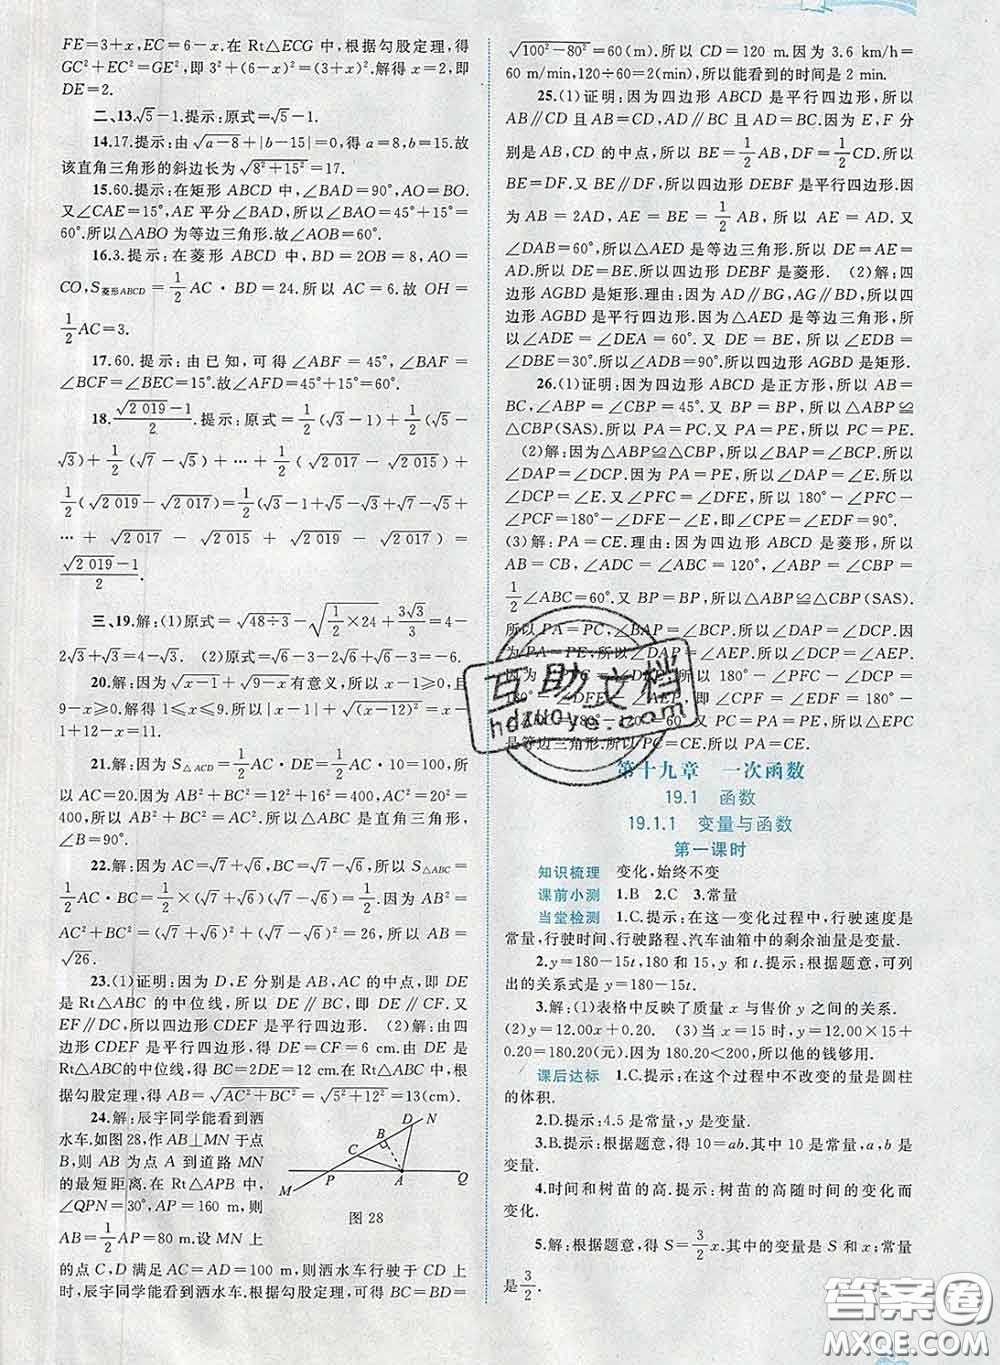 FE=3+x,EC=6-x.在 Rt△ECG 中,根据勾股定理,得
GC²+EC²=GE²,即 3²+(6-x)²=(3+x)².解得 x=2,即
DE=2.
二、13.√5-1.提示:原式=√5-1.
14.17.提示:由√(a-8)+|b-15|=0,得 a=8,b=15.故
该直角三角形的斜边长为√(8²+15²)=17.
15.60.提示:在矩形 ABCD 中,∠BAD=90°,AO=BO.
又∠CAE=15°,AE 平分∠BAD,所以∠BAO=45°+15°=
60°.所以△ABO 为等边三角形.故∠AOB=60°.
16.3.提示:在菱形 ABCD 中,BD=2OB=8,AO=
CO,S菱形ABCD=1/2 AC·BD=24.所以 AC=6.故 OH=
1/2 AC=3.
17.60.提示:由已知,可得∠ABF=45°,∠BAF=
∠BCF=∠BEC=15°.故∠AFD=45°+15°=60°.
18.(√2 019-1)/2.提示:原式=1/2(√3-1)+1/2(√5-
√3)+1/2(√7-√5)+…+1/2(√2 017-√2 015)+
1/2(√2 019-√2 017)=1/2(√3-1+√5-√3+√7-√5+
…+√2 017-√2 015+√2 019-√2 017)=
(√2 019-1)/2.
三、19.解:(1)原式=√(48÷3)-√(1/2×24)+3√3/3=4-
2√3+√3=4-√3. (2)原式=√6-3-2√6+√6-3=-6.
20.解:因为√(x-1)+√(9-x)有意义,所以 x-1≥0,且
9-x≥0.解得 1≤x≤9.所以|x-1|+√(x-12)²=x-
1+12-x=11.
21.解:因为 S△ACD=1/2 AC·CD,所以 1/2×30·
AC=300.所以 AC=20.因为 AB²+BC²=12²+16²=
400,所以 AB²+BC²=AC²=400.所以△ABC 是直角三角形,
且∠B=90°.
22.解:因为 AC=√7+√6,BC=√7-√6,所以 S△ABC=
1/2 AC×BC=1/2×(√7+√6)(√7-√6)=1/2.因为 AB²=
AC²+BC²=(√7+√6)²+(√7-√6)²=26,所以 AB=
√26.
23.(1)证明:因为 D,E 分别是 AB,AC 的中点,即 DE
是 Rt△ABC 的中位线,所以 DE∥BC,即 DE∥CF.又因为
EF∥DC,所以四边形 CDEF 是平行四边形. (2)解:由四
边形 CDEF 是平行四边形,得 DE=CF=6 cm.由 DE 是
Rt△ABC 的中位线,得 BC=2DE=12 cm.在 Rt△ABC 中,
根据勾股定理,得 AB=√(AC²+BC²)=√(5²+12²)=13(cm).
24.解:辰宇同学能看到洒
水车.如图28,作 AB⊥MN 于点
B,则 AB 为点 A 到道路 MN
的最短距离.在 Rt△APB 中,
∠QPN=30°,AP=160 m,所以
AB=1/2 AP=80 m.设 MN 上
N
D
B
C
M
P
A
Q
图 28
的点 C,D 满足 AC=AD=100 m,则洒水车行驶于 CD 上
时,辰宇同学能看到洒水车.根据勾股定理,可得 BC=BD=
√(100²-80²)=60(m).所以 CD=120 m.因为 3.6 km/h=
60 m/min,120÷60=2(min),所以能看到的时间是 2 min.
25.(1)证明:因为四边形 ABCD 是平行四边形,所以
AB∥CD 且 AB=CD,AD=BC.因为 E,F 分
别是 AB,CD 的中点,所以 BE=1/2 AB,DF=1/2 CD.所以
BE=DF.又 BE∥DF,所以四边形 DEBF 是平行四边形.因
为 AB=2AD,AE=BE=1/2 AB,所以 AD=AE.又
∠DAB=60°,所以△AED 是等边三角形.所以 DE=AE=
AD.所以 DE=BE.所以四边形 DEBF 是菱形. (2)解:四
边形 AGBD 是矩形.理由:因为 AD∥BG,AG∥BD,所以四
边形 AGBD 是平行四边形.因为△AED 是等边三角形,所
以∠ADE=∠DEA=60°.又 DE=BE,所以∠EDB=
∠DBE=30°.所以∠ADB=90°.所以四边形 AGBD 是矩形.
26.(1)证明:因为四边形 ABCD 是正方形,所以 AB=
BC,∠ABP=∠CBP=45°.又 BP=BP,所以△ABP≌
△CBP(SAS).所以 PA=PC.又 PA=PE,所以 PC=PE.
(2)解:因为△ABP≌△CBP,所以∠BAP=∠BCP.所以
∠DAP=∠DCP.因为 PA=PE,所以∠DAP=∠E.所以
∠DCP=∠E.又∠PFC=∠DFE,所以 180°-∠PFC-
∠PCF=180°-∠DFE-∠E,即∠CPE=∠EDF=90°.
(3)解:PA=CE.理由:因为四边形 ABCD 是菱形,所以
AB=CB,∠ADC=∠ABC=120°,∠ABP=∠CBP=
1/2∠ABC=60°.又 BP=BP,所以△ABP≌△CBP(SAS).
所以 PA=PC,∠BAP=∠BCP.所以∠DAP=∠DCP.因
为 PA=PE,所以
180°-∠ADC=180°-120°=60°.又 所以△EPC
是等边三角形.所以 PC=CE.所以 PA=CE.
第十九章 一次函数
19.1 函数
19.1.1 变量与函数
第一课时
知识梳理 变化,始终不变
课前小测 1.B 2.C 3.常量
当堂检测 1.C.提示:在这一变化过程中,行驶速度是
常量,行驶时间、行驶路程、汽车油箱中的剩余油量是变量.
2.y=180-15t,180 和 15,y 和 t.提示:根据题意,可列
出的关系式是 y=180-15t.
3.解:(1)表格中反映了质量 x 与售价 y 之间的关系.
(2)y=12.00x+0.20. (3)当 x=15 时,y=12.00×15+
0.20=180.20(元).因为 180.20<200,所以他的钱够用.
课后达标 1.C.提示:在这个过程中不改变的量是圆柱
的体积.
2.D.提示:4.5 是常量,y 是变量.
3.B.提示:根据题意,得 10=ab.其中 10 是常量,a,b 是
变量.
4.时间和树苗的高.提示:树苗的高随时间的变化而
变化.
5.解:根据题意,得 S=3/2 x.其中的变量是 S 和 x;常量
是 3/2.
互助文档
hdzuoye.com
答案圈
MXQE.COM